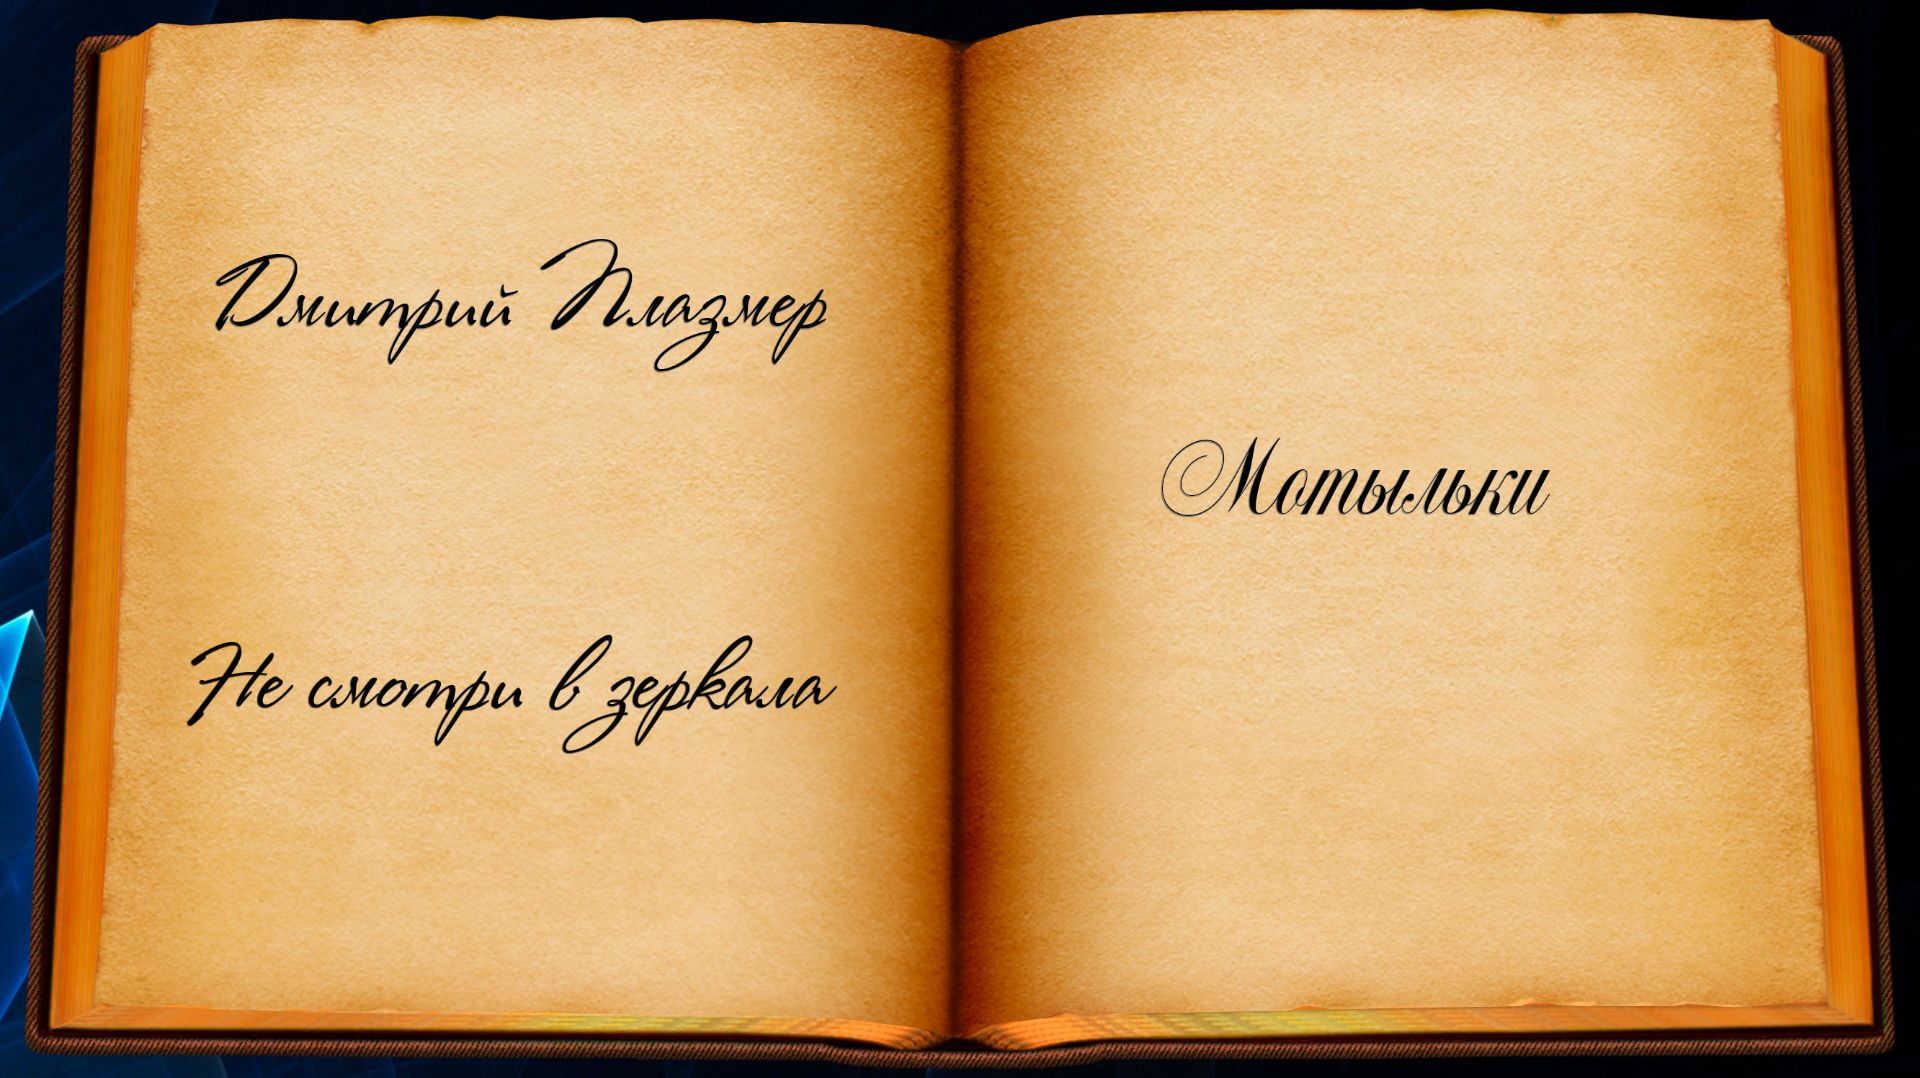 Дмитрий Плазмер
Не смотри в зеркала
Мотыльки